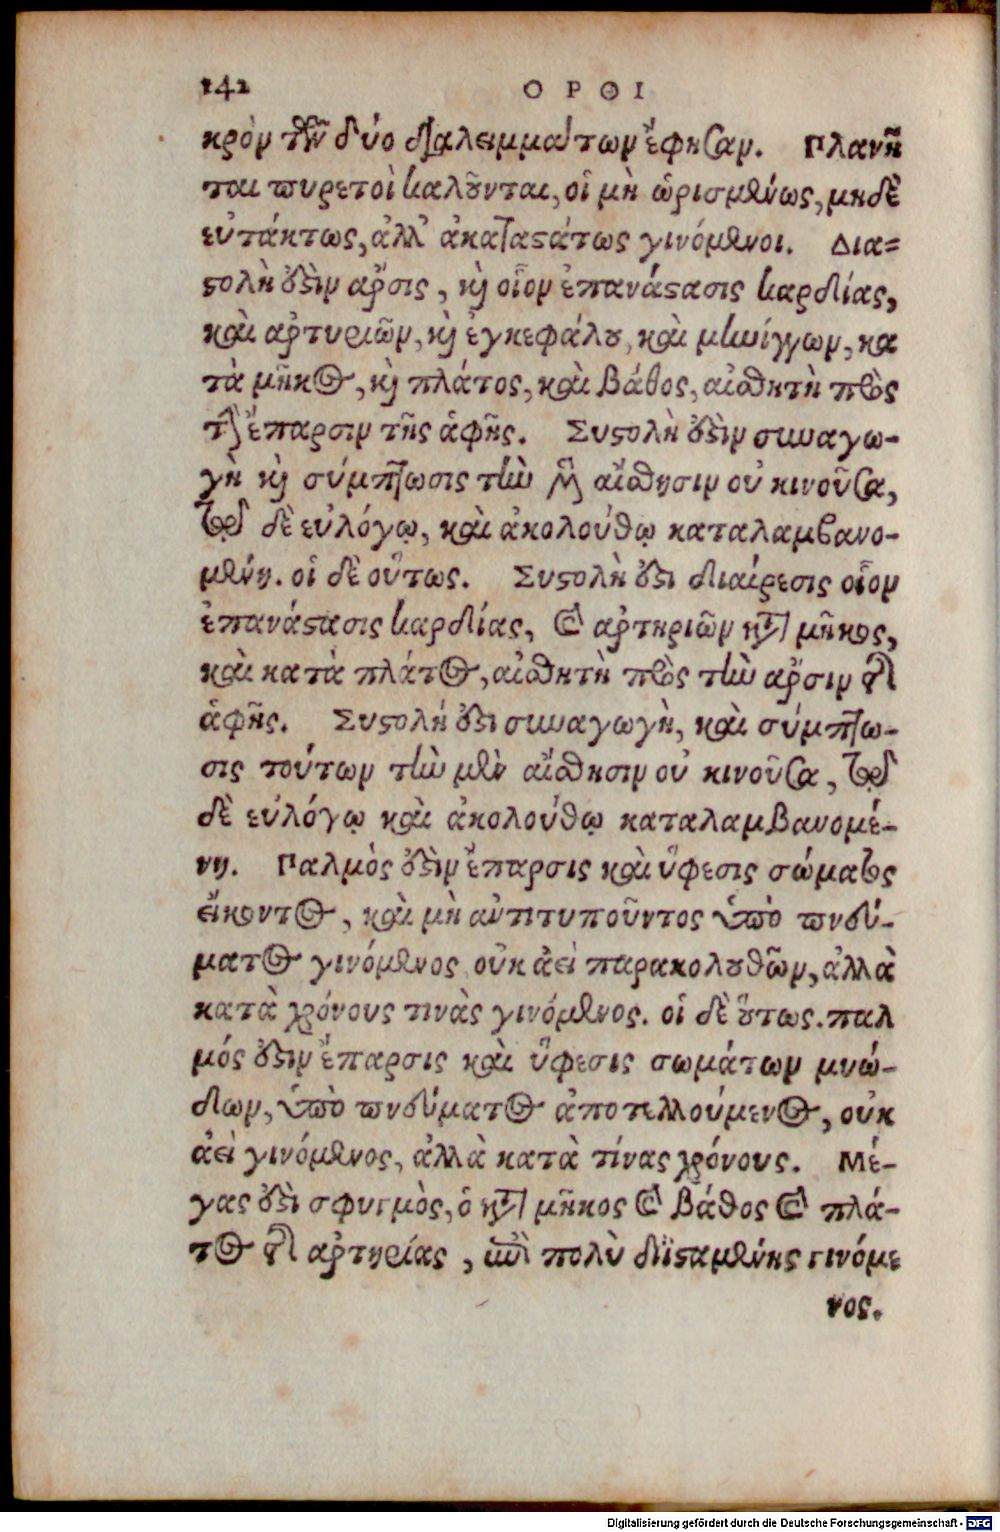 142 ΟΡΘΙ
κρὸν τῶν δύο διαλειμμάτων ἔφησαν. Πλανῆ
ται πυρετοὶ καλοῦνται, οἱ μὴ ὡρισμένως, μηδὲ
εὐτάκτως, ἀλλ' ἀκαταστάτως γινόμενοι. Δια=
στολὴ ὅδὶν ἄρσις, καὶ οἷον ἐπανάστασις καρδίας,
καὶ ἀρτυριῶν, καὶ ἐγκεφάλου, καὶ μηνίγγων, κα
τὰ μῆκος, καὶ πλάτος, καὶ βάθος, αἰσθητὴ πρὸς
τὴν ἔπαρσιν τῆς ἁφῆς. Συστολὴ ἐστὶν συναγω-
γὴ καὶ σύμπτωσις τὴν μὲν αἴσθησιν οὐ κινοῦσα,
τῷ δὲ εὐλόγῳ, καὶ ἀκολούθῳ καταλαμβανο-
μένη. οἱ δὲ οὕτως. Συστολὴ ἐστι διαίρεσις οἷον
ἐπανάστασις καρδίας, καὶ ἀρτηριῶν κατὰ μῆκος,
καὶ κατὰ πλάτος, αἰσθητὴ πρὸς τὴν ἄρσιν τῆς
ἁφῆς. Συστολή ἐστι συναγωγὴ, καὶ σύμπτω-
σις τούτων τὴν μὲν αἴσθησιν οὐ κινοῦσα, τῷ
δὲ εὐλόγῳ καὶ ἀκολούθῳ καταλαμβανομέ-
νη. Παλμὸς ἐστὶν ἔπαρσις καὶ ὕφεσις σώματος
εἴκοντος, καὶ μὴ ἀντιτυποῦντος ὑπὸ πνεύ-
ματος γινόμενος οὐκ ἀεὶ παρακολουθῶν, ἀλλὰ
κατὰ χρόνους τινὰς γινόμενος. οἱ δὲ οὕτως. παλ
μός ἐστιν ἔπαρσις καὶ ὕφεσις σωμάτων μυώ-
δων, ὑπὸ πνεύματος ἀποτελλούμενος, οὐκ
ἀεὶ γινόμενος, ἀλλὰ κατὰ τίνας χρόνους. Μέ-
γας ἐστὶ σφυγμὸς, ὁ κατὰ μῆκος καὶ βάθος καὶ πλά-
τος τῆς ἀρτηρίας, ἐπὶ πολὺ διϊσταμένης γινόμε
νος.
Digitalisierung gefördert durch die Deutsche Forschungsgemeinschaft - DFG